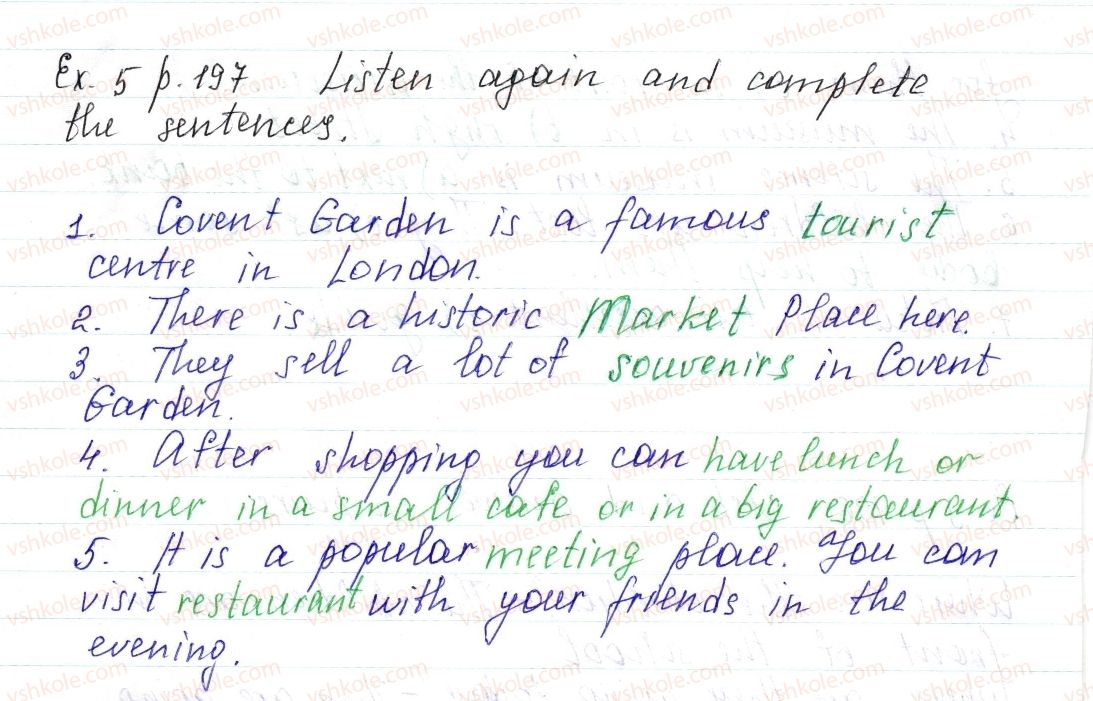 Ex. 5 p. 197 Listen again and complete
the sentences.
1. Covent Garden is a famous tourist
centre in London.
2. There is a historic Market Place here.
3. They sell a lot of souvenirs in Covent
Garden.
4. After shopping you can have lunch or
dinner in a small cafe or in a big restaurant.
5. It is a popular meeting place. You can
visit restaurant with your friends in the
evening.
vshkole.com